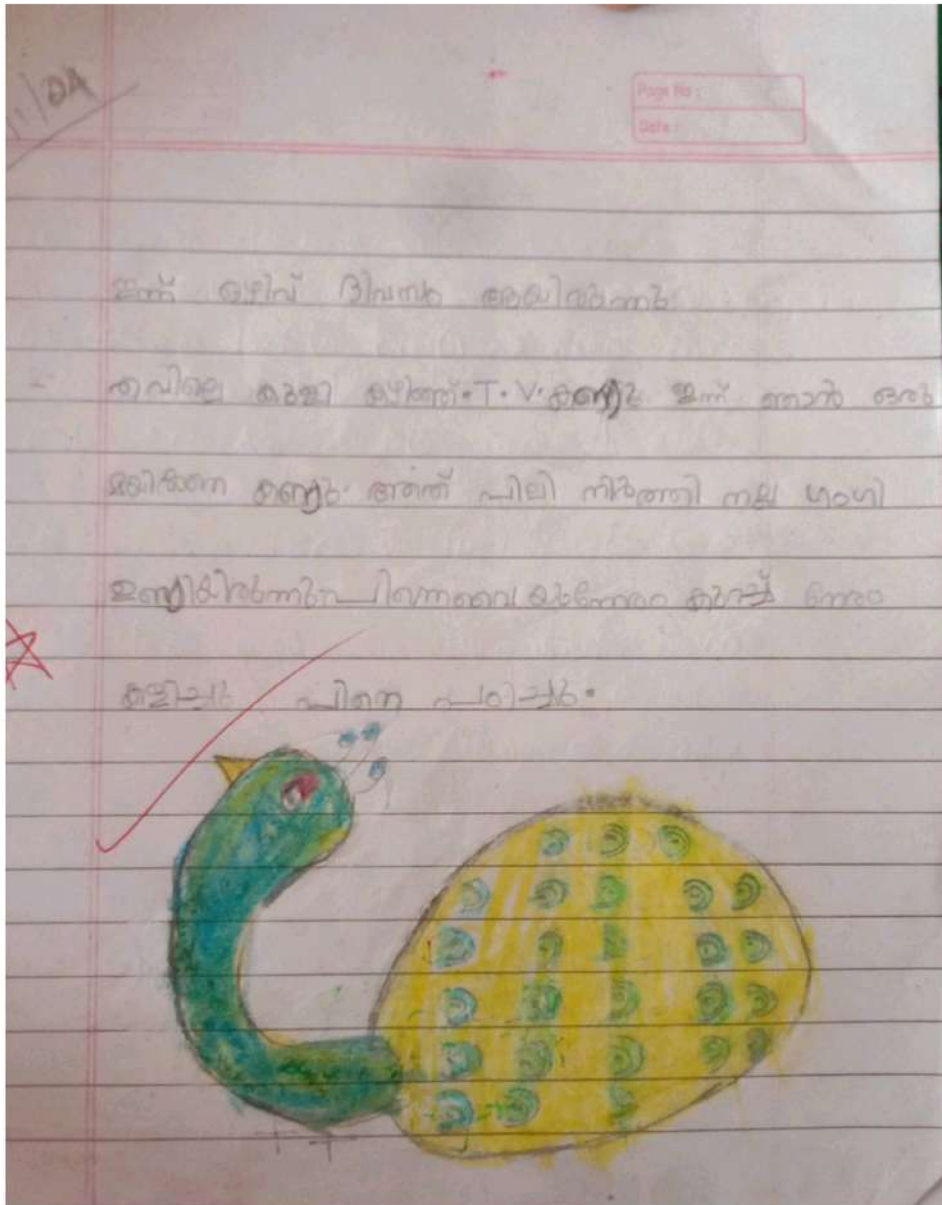 1/24
Page No :
Date :
ഇന്ന് ഒഴിവ് ദിവസം ആയിരുന്നു
രാവിലെ കുളി കഴിഞ്ഞ്. T. V. കണ്ടു ഇന്ന് ഞാൻ ഒരു
മയിലിനെ കണ്ടു. അത് പീലി നിർത്തി നല്ല ഭംഗി
ഉണ്ടിയിരുന്നു പിന്നെ വൈയുന്നേരം കുറച്ച് നേരം
കളിച്ചു പിന്നെ പഠിച്ചു.